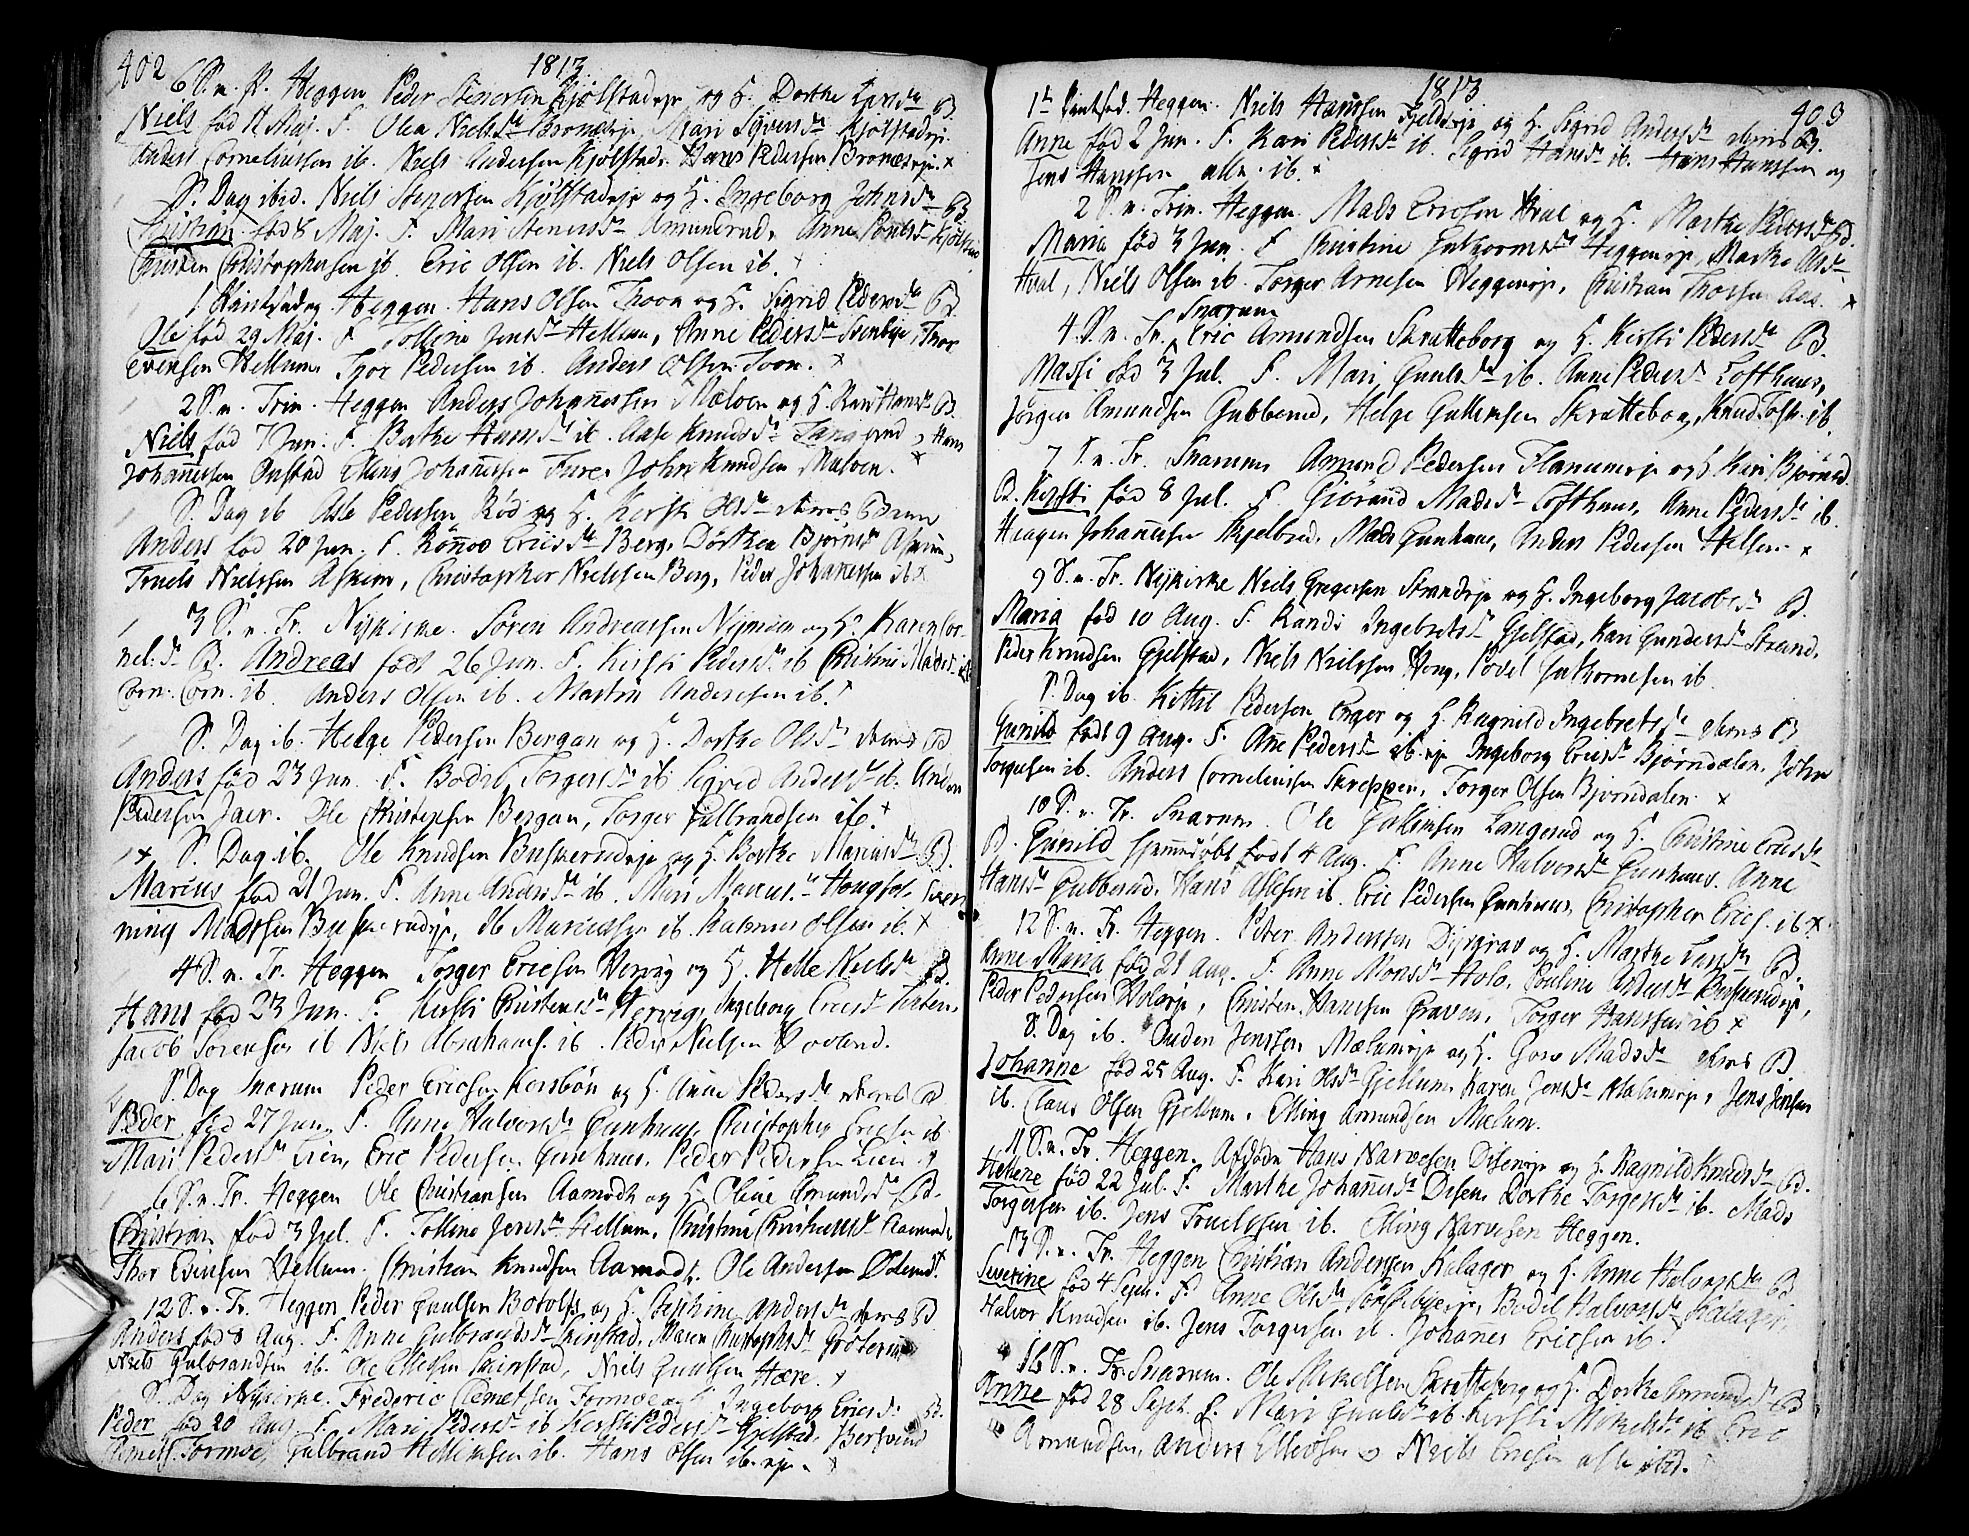 402
1813
6 S. n. P. Heggen Peder Stenersen Kjølstadeje og H. Dorthe Lars D. B.
Niels fød 12 Maj. F. Olea Niels D. Bronæseje, Mari Syvers D. Kjølstadeje.
Anders Corneliussen ib. Niels Andersen Kjølstad. Hans Pedersen Bronæseje.
S. Dag ibid. Niels Stenersen Kjølstadeje og H. Ingeborg Johns D. B.
Christian fød 8 Maj. F. Mari Steners D. Amundrud, Anne Pouls D. Kjølstad
Christen Christophersen ib. Eric Olsen ib. Niels Olsen ib.
1 Pintsedag Heggen. Hans Olsen Thoen og H. Sigrid Peders D. B.
Ole fød 29 Maj. F. Tolline Jens D. Hellum, Anne Peders D. Thor
Evensen Hellum, Thor Pedersen ib. Anders Olsen Toen.
2 S. n. Trin. Heggen Anders Johannessen Mælven og H. Kari Hans D. B.
Niels fød 7 Jun. F. Berthe Hans D. ib. Aase Knuds D. Hans
Johannessen Onstad Johannessen Fure, John Knudsen Mælven.
S. Dag ib. Asle Pedersen Rød og H. Kersti Ols D. deres B.
Anders fød 20 Jun. F. Rønnov Erics D. Berg, Dorthea Bjørns D. Askim,
Truels Nielssen Askim, Christopher Nielssen Berg, Peder Johannessen ib.
3 S. n. Tr. Nykirke. Søren Andreassen Nymoen og H. Karen Cor-
nel. D. B. Andreas født 26 Jun. F. Kirsti Peders D. ib. Christine Mads D. ib.
Corn. Corn. ib. Anders Olsen ib. Martin Andersen ib.
S. Dag ib. Helge Pedersen Bergan og H. Dorthe Ols D. deres B.
Anders fød 23 Jun. F. Bodil Torgers D. ib. Sigrid Anders D. ib. Anders
Pedersen Jaer. Ole Christensen Bergan, Torger Gulbrandsen ib.
S. Dag ib. Ole Knudsen Buskerudeje og H. Berthe Marius D. B.
Marius fød 21 Jun. F. Anne Anders D. ib. Mari Marius D. Haugfos,
ning Madssen Buskerudeje, Ole Mariussen ib. Rasmus Olsen ib.
4 S. n. Tr. Heggen Torger Ericsen Hervig og H. Helle Niels D. B.
Hans fød 23 Jun. F. Kirsti Christens D. Hervig, Ingeborg Erics D.
Jacob Sørensen ib. Niels Abrahams. ib. Peder Nielsen Hovland.
S. Dag Snarum Peder Ericsen Korsbøn og H. Anne Peders D. deres B.
Peder fød 27 Jun. F. Anne Halvors D. Gunhuus, Christopher Ericsen ib.
Mari Peders D. Lien, Eric Pedersen Gunhuus, Peder Pedersen Lien
6 S. n. Tr. Heggen Ole Christiansen Aamodt og H. Oline Amunds D. B.
Christian fød 3 Jul. F. Tolline Jens D. Hellum, Christine Christians D. Aamodt,
Thor Evensen Hellum, Christian Knudsen Aamodt, Ole Andersen
12 S. n. Tr. Heggen Peder Poulsen Botolfs og H. Stephine Anders D. deres B.
Anders fød 8 Aug. F. Anne Gulbrands D. Skinstad, Maren Christophs D.
Niels Gulbrandsen ib. Ole Ellefsen Skinstad, Niels Poulsen Hære.
S. Dag Nykirke. Frederic Clemetsen Formoe og H. Ingeborg Erics D. B.
Peder fød 20 Aug. F. Mari Peders D. ib. Kersti Peders D. Gjelstad, Bersvend
Formoe, Gulbrand Hellemsen ib. Hans Olsen ib. eje.
1813
403
1te Pintsed. Heggen. Niels Hanssen Fjeldeje og H. Sigrid Anders D. deres B.
Anne fød 2 Jun. F. Kari Peders D. ib. Sigrid Hans D. ib. Hans Hanssen og
Jens Hanssen alle ib.
2 S. n. Trin. Heggen. Mads Ericsen Hval og H. Marthe Peders D. B.
Maria fød 3 Jun. F. Christine Guthorms D. Heggeneje, Marthe D.
Hval, Niels Olsen ib. Torger Arnesen Heggeneje, Christian Thorsen Aas.
Snarum
4 S. n. Tr. Eric Amundsen Skratteborg og H. Kersti Peders D. B.
Massi fød 3 Jul. F. Mari Gunuls D. ib. Anne Peders D. Lofthuus,
Jørgen Amundsen Gubberud, Helge Gullixsen Skratteborg, Knud Tost. ib.
7 S. n. Tr. Snarum Amund Pedersen Flannumeje og H. Kari Bjørns D.
B. Kersti fød 8 Jul. F. Gjørand Mads D. Lofthuus, Anne Peders D. ib.
Haagen Johannesen Skjelbred, Mads Gunhuus, Anders Pedersen Helsen
9 S. n. Tr. Nykirke Niels Gregersen Strandeje og H. Ingeborg Jacobs D. B.
Maria fød 10 Aug. F. Randi Ingebrets D. Gjelstad, Kari Gunders D. Strand,
Peder Knudsen Gjelstad, Niels Nielssen Haug, Povel Guthormsen ib.
S. Dag ib. Kittil Pedersen Enger og H. Ragnild Ingebrets D. deres B.
Gunild født 9 Aug. F. Anne Peders D. ib. eje Ingeborg Erics D. Bjørndalen, John
Torgersen ib. Anders Corneliussen Skreppen, Torger Olsen Bjørndalen
10 S. n. Tr. Snarum. Ole Gullixsen Langerud og H. Christine Erics D.
B. Gunild hjemmedøbt født 4 Aug. F. Anne Halvors D. Gunhuus. Anne
Hans D. Gubberud, Hans Aslesen ib. Eric Pedersen Gunhuus, Christopher Erics. ib.
12 S. n. Tr. Heggen. Peter Anderssen Dyrgrav og H. Marthe Lars D. B.
Anne Maria fød 21 Aug. F. Anne Mons D. Holo, Pouline Anders D. Buskerudeje,
Peder Pedersen Holoeje, Christen Hanssen Graven, Torger Hanssen ib.
S. Dag ib. Auden Jenssen Mælumeje og H. Goro Mads D. deres B.
Johanne fød 25 Aug. F. Kari Ols D. Gjellum, Karen Jens D. Mælumeje, Jens Jensen
ib. Claus Olsen Gjellum, Elling Amundsen Mælum.
11 S. n. Tr. Heggen. Afdøde Hans Narvesen Diseneje og H. Ragnild Knuds D. B.
Helene fød 22 Jul. F. Marthe Johannes D. Disen, Dorthe Torgers D. ib. Mads
Torgersen ib. Jens Truelssen ib. Elling Narvesen Heggen.
13 S. n. Tr. Heggen Christian Andersen Kalager og H. Anne Halvors D. B.
Severine fød 4 Sept. F. Anne Ols D. Bodel Halvors D. Kalager,
Halvor Knudsen ib. Jens Torgersen ib. Johannes Ericsen ib.
16 S. n. Tr. Snarum. Ole Mikelsen Skratteborg og H. Dorthe Amunds D. B.
Anne fød 28 Sept. F. Mari Gunuls D. ib. Kersti Mikels D. ib. Eric
Amundsen, Anders Ellevsen og Niels Ericsen alle ibid.